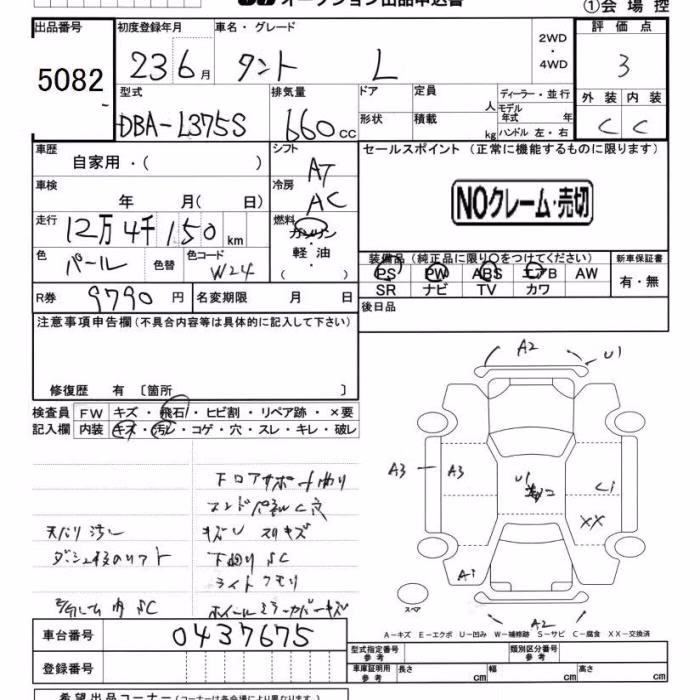 オークション出品申込書
①会場控
出品番号
5082
初度登録年月
23 6月
車名・グレード
タント L
2WD
・
4WD
評価点
3
型式
DBA-L375S
排気量
660cc
ドア
形状
定員
人
積載
kg
ディーラー・並行
モデル年式 年
ハンドル 左・右
外装 内装
C C
車歴
自家用・( )
シフト
AT
セールスポイント (正常に機能するものに限ります)
NOクレーム・売切
車検
年 月( 日)
冷房
AC
走行
12万4千150km
燃料
ガソリン
軽油
( )
色
パール
色替
色コード
W24
装備品 (純正品に限り○をつけてください)
PS PW ABS エアB AW
SR ナビ TV カワ
新車保証書
有・無
R券
9790円
名変期限 月 日
後日品
注意事項申告欄(不具合内容等は具体的に記入して下さい)
修復歴 有 〔箇所 〕
検査員記入欄
FW キズ・飛石・ヒビ割・リペア跡・×要
内装 キズ・汚レ・コゲ・穴・スレ・キレ・破レ
下回りSC
A2 U1
A3 A3
U1
XX
A1
A2
スペア
A-キズ E-エクボ U-凹み W-補修跡 S-サビ C-腐食 XX-交換済
車台番号 0437675
登録番号
型式指定番号 参考
類別区分番号 参考
車庫証明用 参考
長さ cm 幅 cm 高さ cm
希望出品コーナー(コーナーは各会場により異なります)